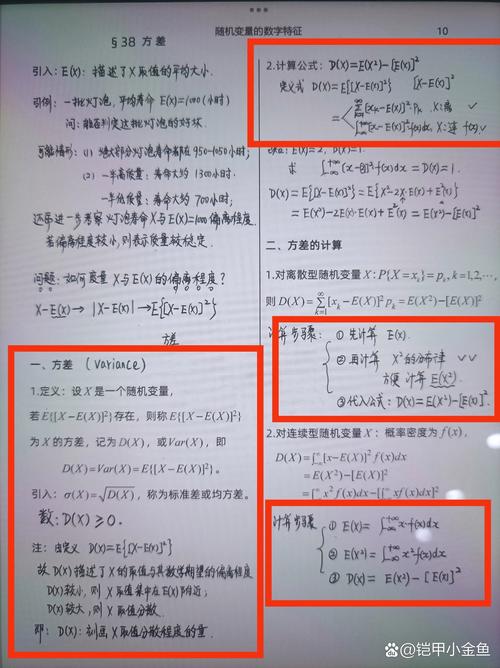 随机变量的数字特征
10
§38 方差
引入：E(X)：描述了X取值的平均大小.
引例：一批灯泡，平均寿命E(X)=1000(小时)
问：能否判定这批灯泡的好坏.
可能情形：(1) 绝大部分灯泡寿命都在950~1050小时；
(2) 一半高质量：寿命大约1300小时.
一半低质量：寿命大约700小时；
还需进一步考察灯泡寿命X与E(X)=1000偏离程度.
若偏离程度较小，则表示质量较稳定.
问题：如何度量X与E(X)的偏离程度？
X-E(X) → |X-E(X)| → E{[X-E(X)]²}
方差
一、方差 (Variance)
1.定义：设X是一个随机变量，
若E{[X-E(X)]²}存在，则称E{[X-E(X)]²}
为X的方差，记为D(X)，或Var(X)，即
D(X)=Var(X)=E{[X-E(X)]²}.
引入：σ(X)=√D(X)，称为标准差或均方差。
数：D(X)≥0.
注：由定义 D(X)=E{[X-E(X)]²}
故D(X)描述了X的取值与其数学期望的偏离程度
D(X)较小，则X取值集中在E(X)附近；
D(X)较大，则X取值分散.
即：D(X)：刻画X取值分散程度的量.
2.计算公式：D(X)=E(X²)-[E(X)]²
定义式 D(X)=E{[X-E(X)]²} [X-E(X)]²
=
∑[xₖ-E(X)]²·Pₖ. X:离
∫[x-E(X)]²f(x)dx, X:连 f(x).
E(X)=2, D(X)=1.
求 ∫(x-2)²f(x)dx = D(X)=1.
D(X)=E{[X-E(X)]²}=E{X²-2X·E(X)+E²(X)}
=E(X²)-2E(X)·E(X)+E²(X)=E(X²)-[E(X)]²
二、方差的计算
1.对离散型随机变量X：P{X=xₖ}=pₖ, k=1,2,⋯,
则D(X)=∑[xₖ-E(X)]²pₖ=E(X²)-[E(X)]²
计算步骤：① 先计算E(X).
② 再计算X²的分布律 ✓✓
方便计算E(X²).
③ 代入公式：D(X)=E(X²)-[E(X)]².
2.对连续型随机变量X：概率密度为f(x)，
D(X)=∫[x-E(X)]²f(x)dx
=E(X²)-[E(X)]²
=∫x²f(x)dx-[∫xf(x)dx]²
计算步骤 ① E(X)=∫x·f(x)dx
② E(X²)=∫x²·f(x)dx
③ D(X)=E(X²)-[E(X)]²
Bai百家号/铠甲小金鱼